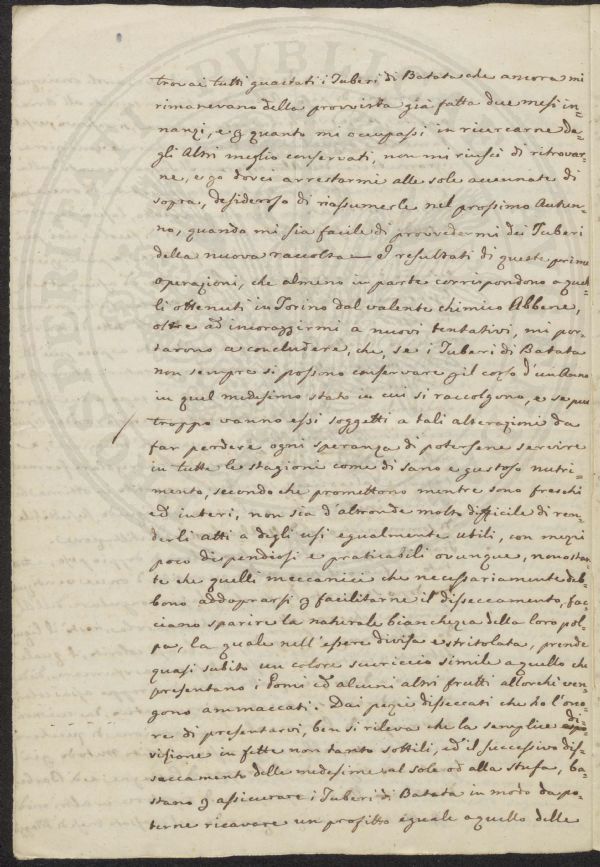 trovai tutti guastati i Tuberi di Batata che ancora mi
rimanevano della provvista già fatta due mesi in-
nanzi, e p quanto mi occupassi in ricercarne de-
gli Altri meglio conservati, non mi riuscì di ritrovar-
ne, e dovei arrestarmi alle sole accennate di
sopra, desideroso di riassumerle nel prossimo Autun-
no, quando mi sia facile di provvedermi dei Tuberi
della nuova raccolta — I resultati di queste prime
operazioni, che almeno in parte corrispondono a quel-
li ottenuti in Torino dal valente chimico Abbene,
oltre ad incoraggirmi a nuovi tentativi, mi por-
tarono a concludere, che, se i Tuberi di Batata
non sempre si possono conservare p il corso d'un Anno
in quel medesimo stato in cui si raccolgono, e se pur
troppo vanno essi soggetti a tali alterazioni da
far perdere ogni speranza di potersene servire
in tutte le stagioni come di sano e gustoso nutri-
mento, secondo che promettono mentre sono freschi
ed interi, non sia d'altronde molto difficile di ren-
derli atti a degli usi egualmente utili, con mezzi
poco dispendiosi e praticabili ovunque, nonostan-
te che quelli meccanici che necessariamente deb-
bono addoprarsi p facilitarne il disseccamento, fac-
ciano sparire la naturale bianchezza della loro pol-
pa, la quale nell'essere divisa e stritolata, prende
quasi subito un colore scuriccio simile a quello che
presentano i Pomi ed alcuni altri frutti allorchè ven-
gono ammaccati. Dai pezzi disseccati che ho l'ono-
re di presentarvi, ben si rileva che la semplice di-
visione in fette non tanto sottili, ed il successivo dis-
seccamento delle medesime al sole od alla stufa, ba-
stano p assicurare i Tuberi di Batata in modo da po-
terne ricavare un profitto eguale a quello delle